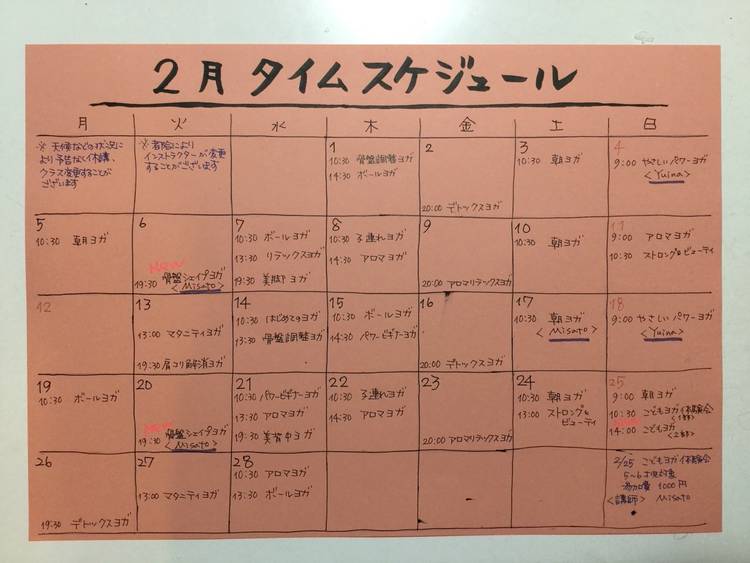 2月 タイムスケジュール
月 火 水 木 金 土 日
※ 天候などの状況に
より予告なく休講、
クラス変更することが
ございます
※ 都合により
インストラクターが変更
することがございます
1
10:30 骨盤調整ヨガ
14:30 ボールヨガ
2
20:00 デトックスヨガ
3
10:30 朝ヨガ
4
9:00 やさしいパワーヨガ
<Yuina>
5
10:30 朝ヨガ
6
NEW
19:30 骨盤シェイプヨガ
<Misato>
7
10:30 ボールヨガ
13:30 リラックスヨガ
19:30 美脚ヨガ
8
10:30 子連れヨガ
14:30 アロマヨガ
9
20:00 アロマリラックスヨガ
10
10:30 朝ヨガ
11
9:00 アロマヨガ
10:30 ストロング&ビューティ
12
13
13:00 マタニティヨガ
19:30 肩コリ解消ヨガ
14
10:30 はじめてのヨガ
13:30 骨盤調整ヨガ
15
10:30 ボールヨガ
14:30 パワービギナーヨガ
16
20:00 デトックスヨガ
17
10:30 朝ヨガ
<Misato>
18
9:00 やさしいパワーヨガ
<Yuina>
19
10:30 ボールヨガ
20
NEW
19:30 骨盤シェイプヨガ
<Misato>
21
10:30 パワービギナーヨガ
13:00 アロマヨガ
19:30 美背中ヨガ
22
10:30 子連れヨガ
14:30 アロマヨガ
23
20:00 アロマリラックスヨガ
24
10:30 朝ヨガ
13:00 ストロング&
ビューティ
25
9:00 朝ヨガ
10:30 こどもヨガ体験会
<1部>
14:00 こどもヨガ
<2部>
26
19:30 デトックスヨガ
27
13:00 マタニティヨガ
28
10:30 アロマヨガ
13:30 ボールヨガ
2/25 こどもヨガ体験会
5~6才児対象
参加費 1000円
<講師> Misato